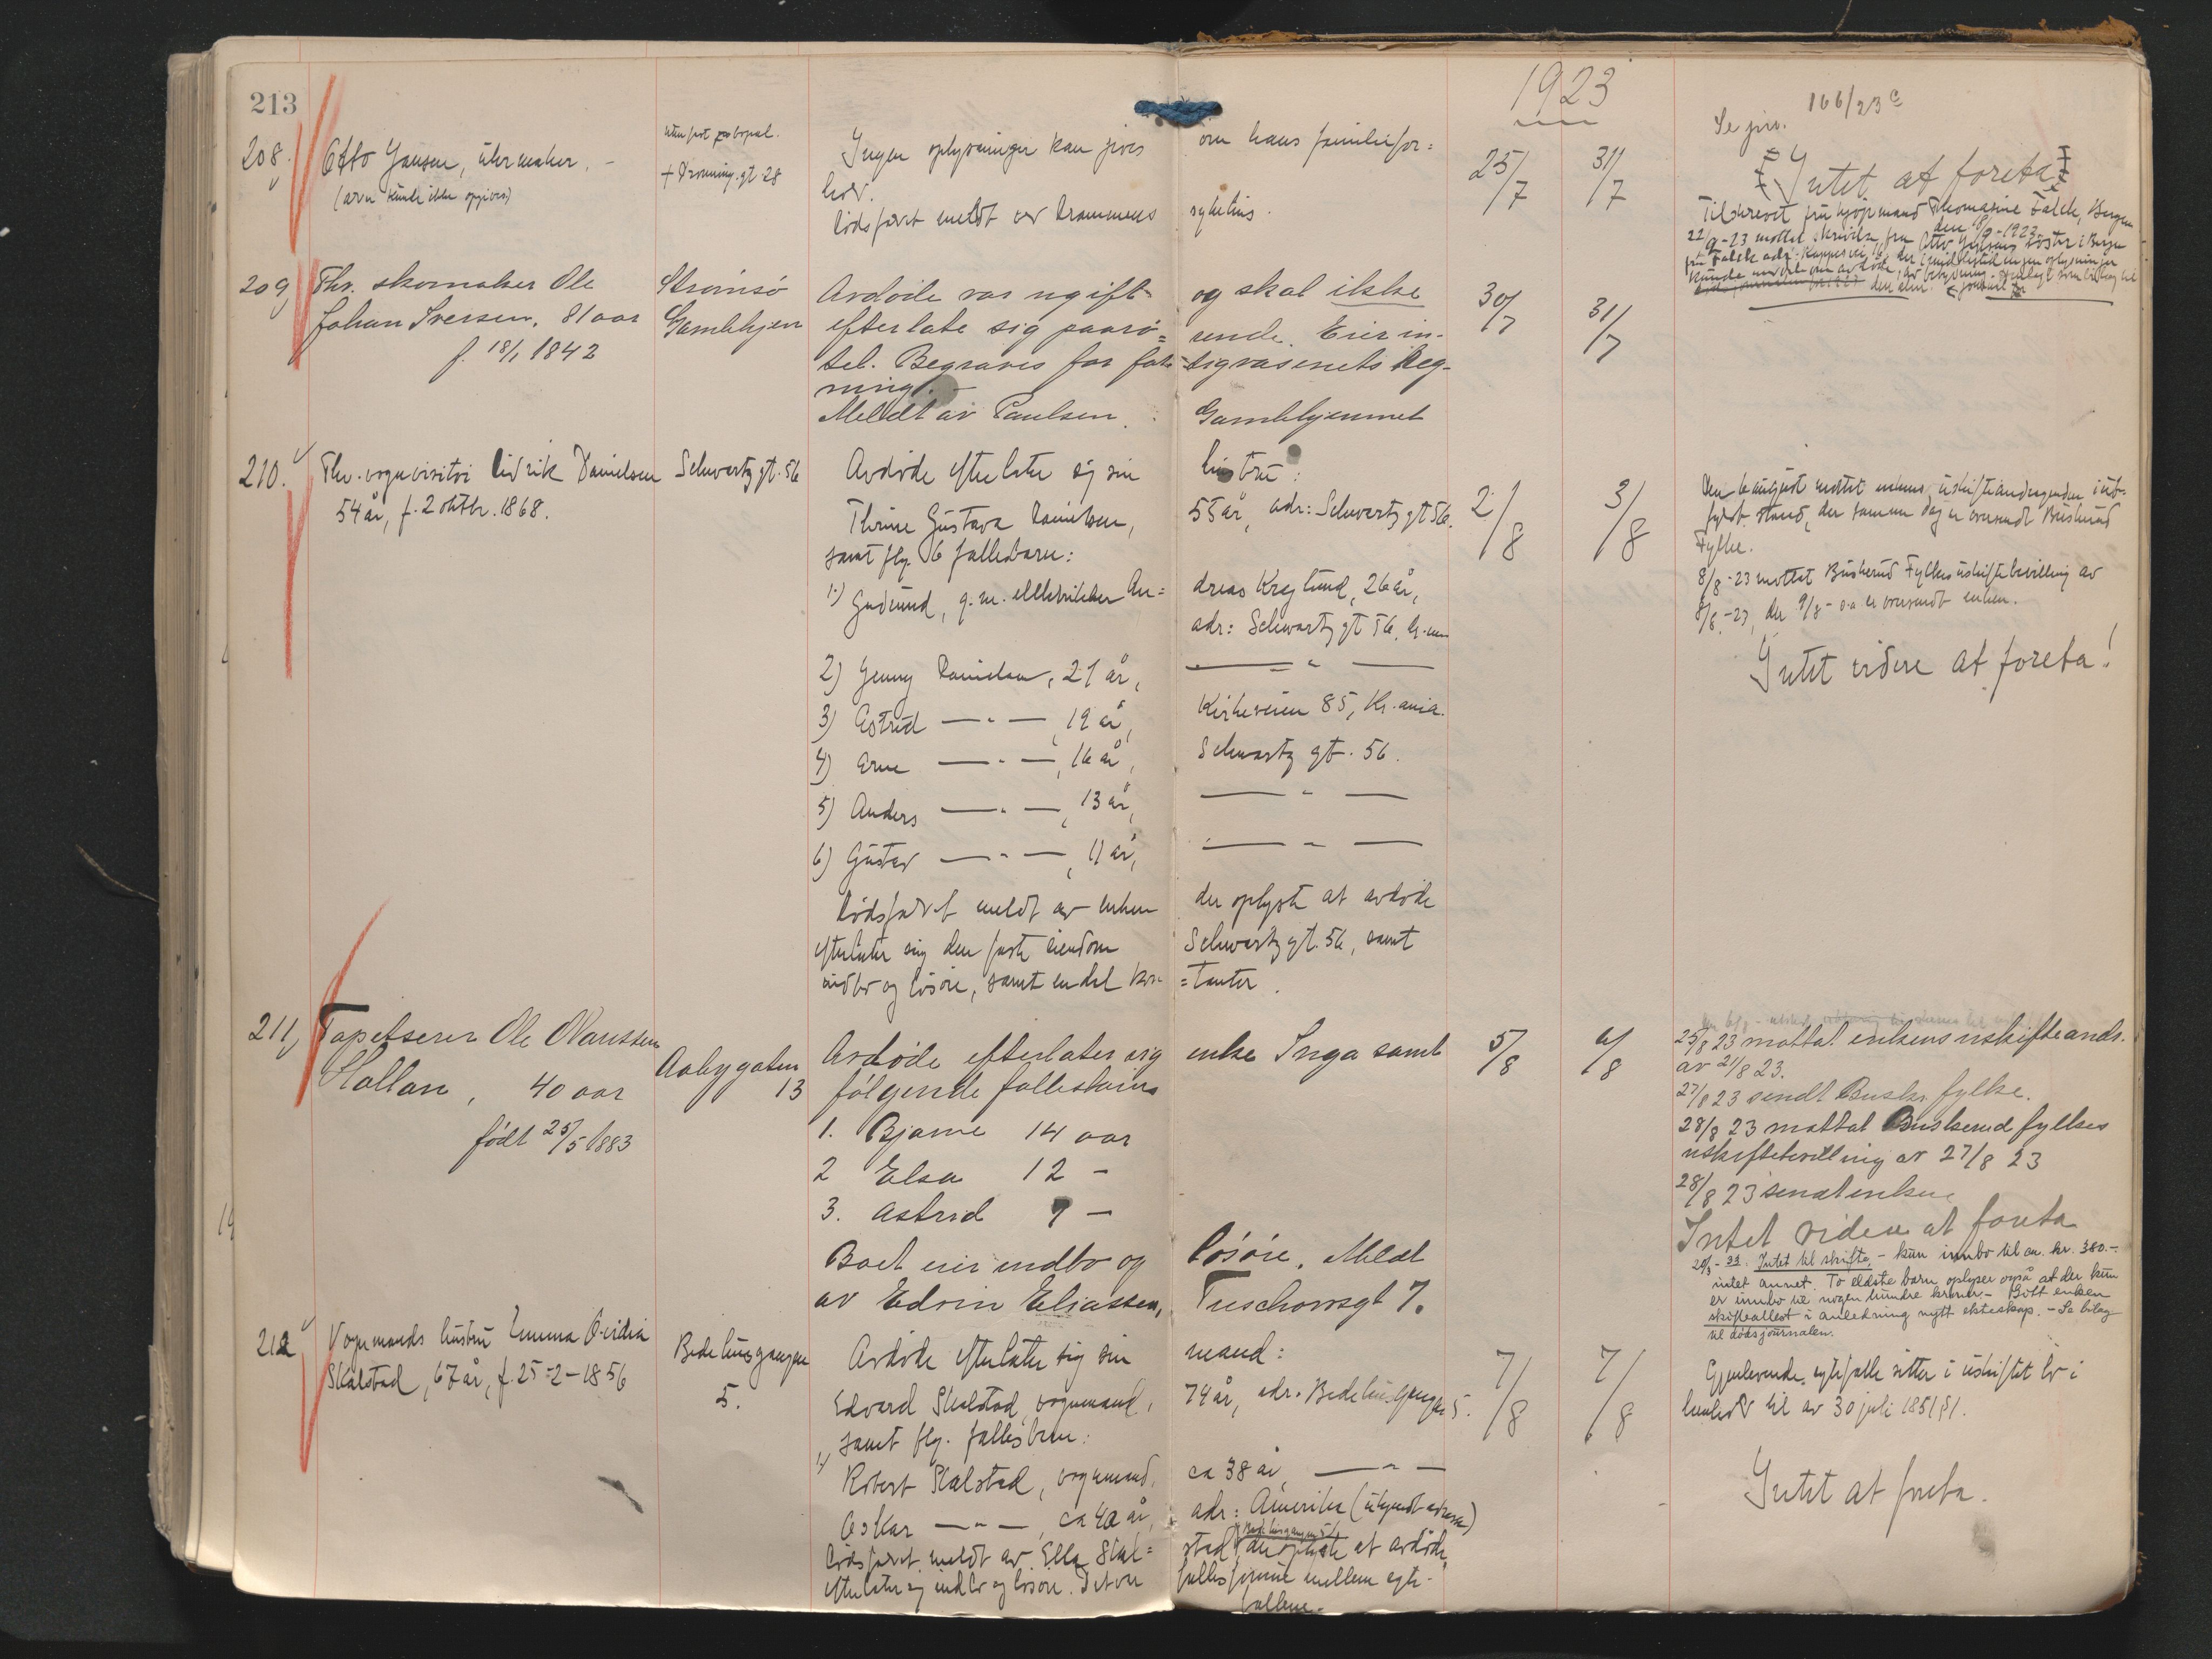 213
1923
208. Otto Jansen, uhrmaker. -
(arv. kunde ikke opgives)
uten fast bopæl.
+ Dronning.gt 28
Ingen oplysninger kan gives om haus familiefor=
hold.
Dödsfaldet meldt ved Drammens sykehus.
25/7
31/7
Se jnr. 166/23 c
Intet at foreta
Tilskrevet fru kjöpmand Thomasine Falch, Bergen
22/9-23 mottat skrivelse fra Otto Jansens söster i Bergen
209, Fhv. skomaker Ole
Johan Iversen, 81 aar
f. 18/1 1842
Strömsö
Gamlehjem
Avdöde var ugift og skal ikke
efterlate sig paarö= rende. Eier in-
tet. Begraves for fat- tigvæsenets Reg-
ning.
Meldt av Paulsen, Gamlehjemmet
30/7
31/7
210. Fhv. vognvisitör Didrik Danielsen
54 år, f. 2 oktbr. 1868.
Schwartz gt. 56
Avdöde efterlater sig sin hustru:
Thrine Gustava Danielsen, 55 år, adr: Schwartz gt 56.
samt flg. 6 fællesbarn:
1.) Gudrund, g. m. elektriker An= dreas Kreglund, 26 år,
adr: Schwartz gt 56, Dr.men
2) Jenny Danielsen, 21 år, — " —
3) Astrid — " —, 19 år, Kirkeveien 85, Kr.ania.
4) Arne — " —, 16 år, Schwartz gt. 56.
5) Anders — " —, 13 år, — " —
6) Gustav — " —, 11 år, — " —
Dödsfaldet meldt av enken der oplyste at avdöde
efterlater sig den faste eiendom Schwartz gt. 56, samt
indbo og lösöre, samt endel kon= =tanter.
2/8
3/8
Den 6 august mottat enkens uskifteandragende i ut-
fyldt stand, der samme dag er oversendt Buskerud
Fylke.
8/8-23 mottat Buskerud Fylkes uskiftebevilling av
8/8-23, der 9/8- s.a. er oversendt enken.
Intet videre at foreta!
211, Tapetserer Ole Olaussen
Hollan, 40 aar
födt 25/5 1883
Aabygaten
13
Avdöde efterlater sig enke Inga samt
fölgende fællesbarn
1. Bjarne 14 aar
2 Elsa 12 -
3. Astrid 7 -
Boet eier indbo og lösöre. Meldt
av Edvin Eliassen, Tuschowsgt 7.
5/8
6/8
25/8 23 mottat enkens uskifteandr.
av 21/8 23.
27/8 23 sendt Busk. fylke.
28/8 23 mottat Buskerud fylkes
uskiftebevilling av 27/8 23
28/8 23 sendt enken
Intet videre at foreta
20/3-33. Intet til skifte, - kun innbo til an. kr. 380.-
intet annet. To eldste barn oplyser også at der kun
er innbo til nogen hundre kroner. - Bedt enken
skifteattest i anledning nytt ekteskap. - Se bilag
til dödsjournalen.
212 Vognmands hustru Emma Ovidia
Skalstad, 67 år, f. 25-2-1856
Bedehusgangen
5.
Avdöde efterlater sig sin mand:
Edvard Skalstad, vognmand, 74 år, adr. Bedehusgangen 5.
samt flg. fællesbarn:
1) Robert Skalstad, vognmand, ca 38 år, — " —
Oskar — " —, ca 40 år, adr: Amerika (ukjendt adresse)
Dödsfaldet meldt av Ella Skal= stad, Bedehusgangen 5, der oplyste at avdöde
efterlater sig indbo og lösöre. Det var fællesformue mellem egte-
fællene.
7/8
7/8
Gjenlevende egtefælle sitter i uskiftet bo i
henhold til lov av 30 juli 1851 § 1.
Intet at foreta.